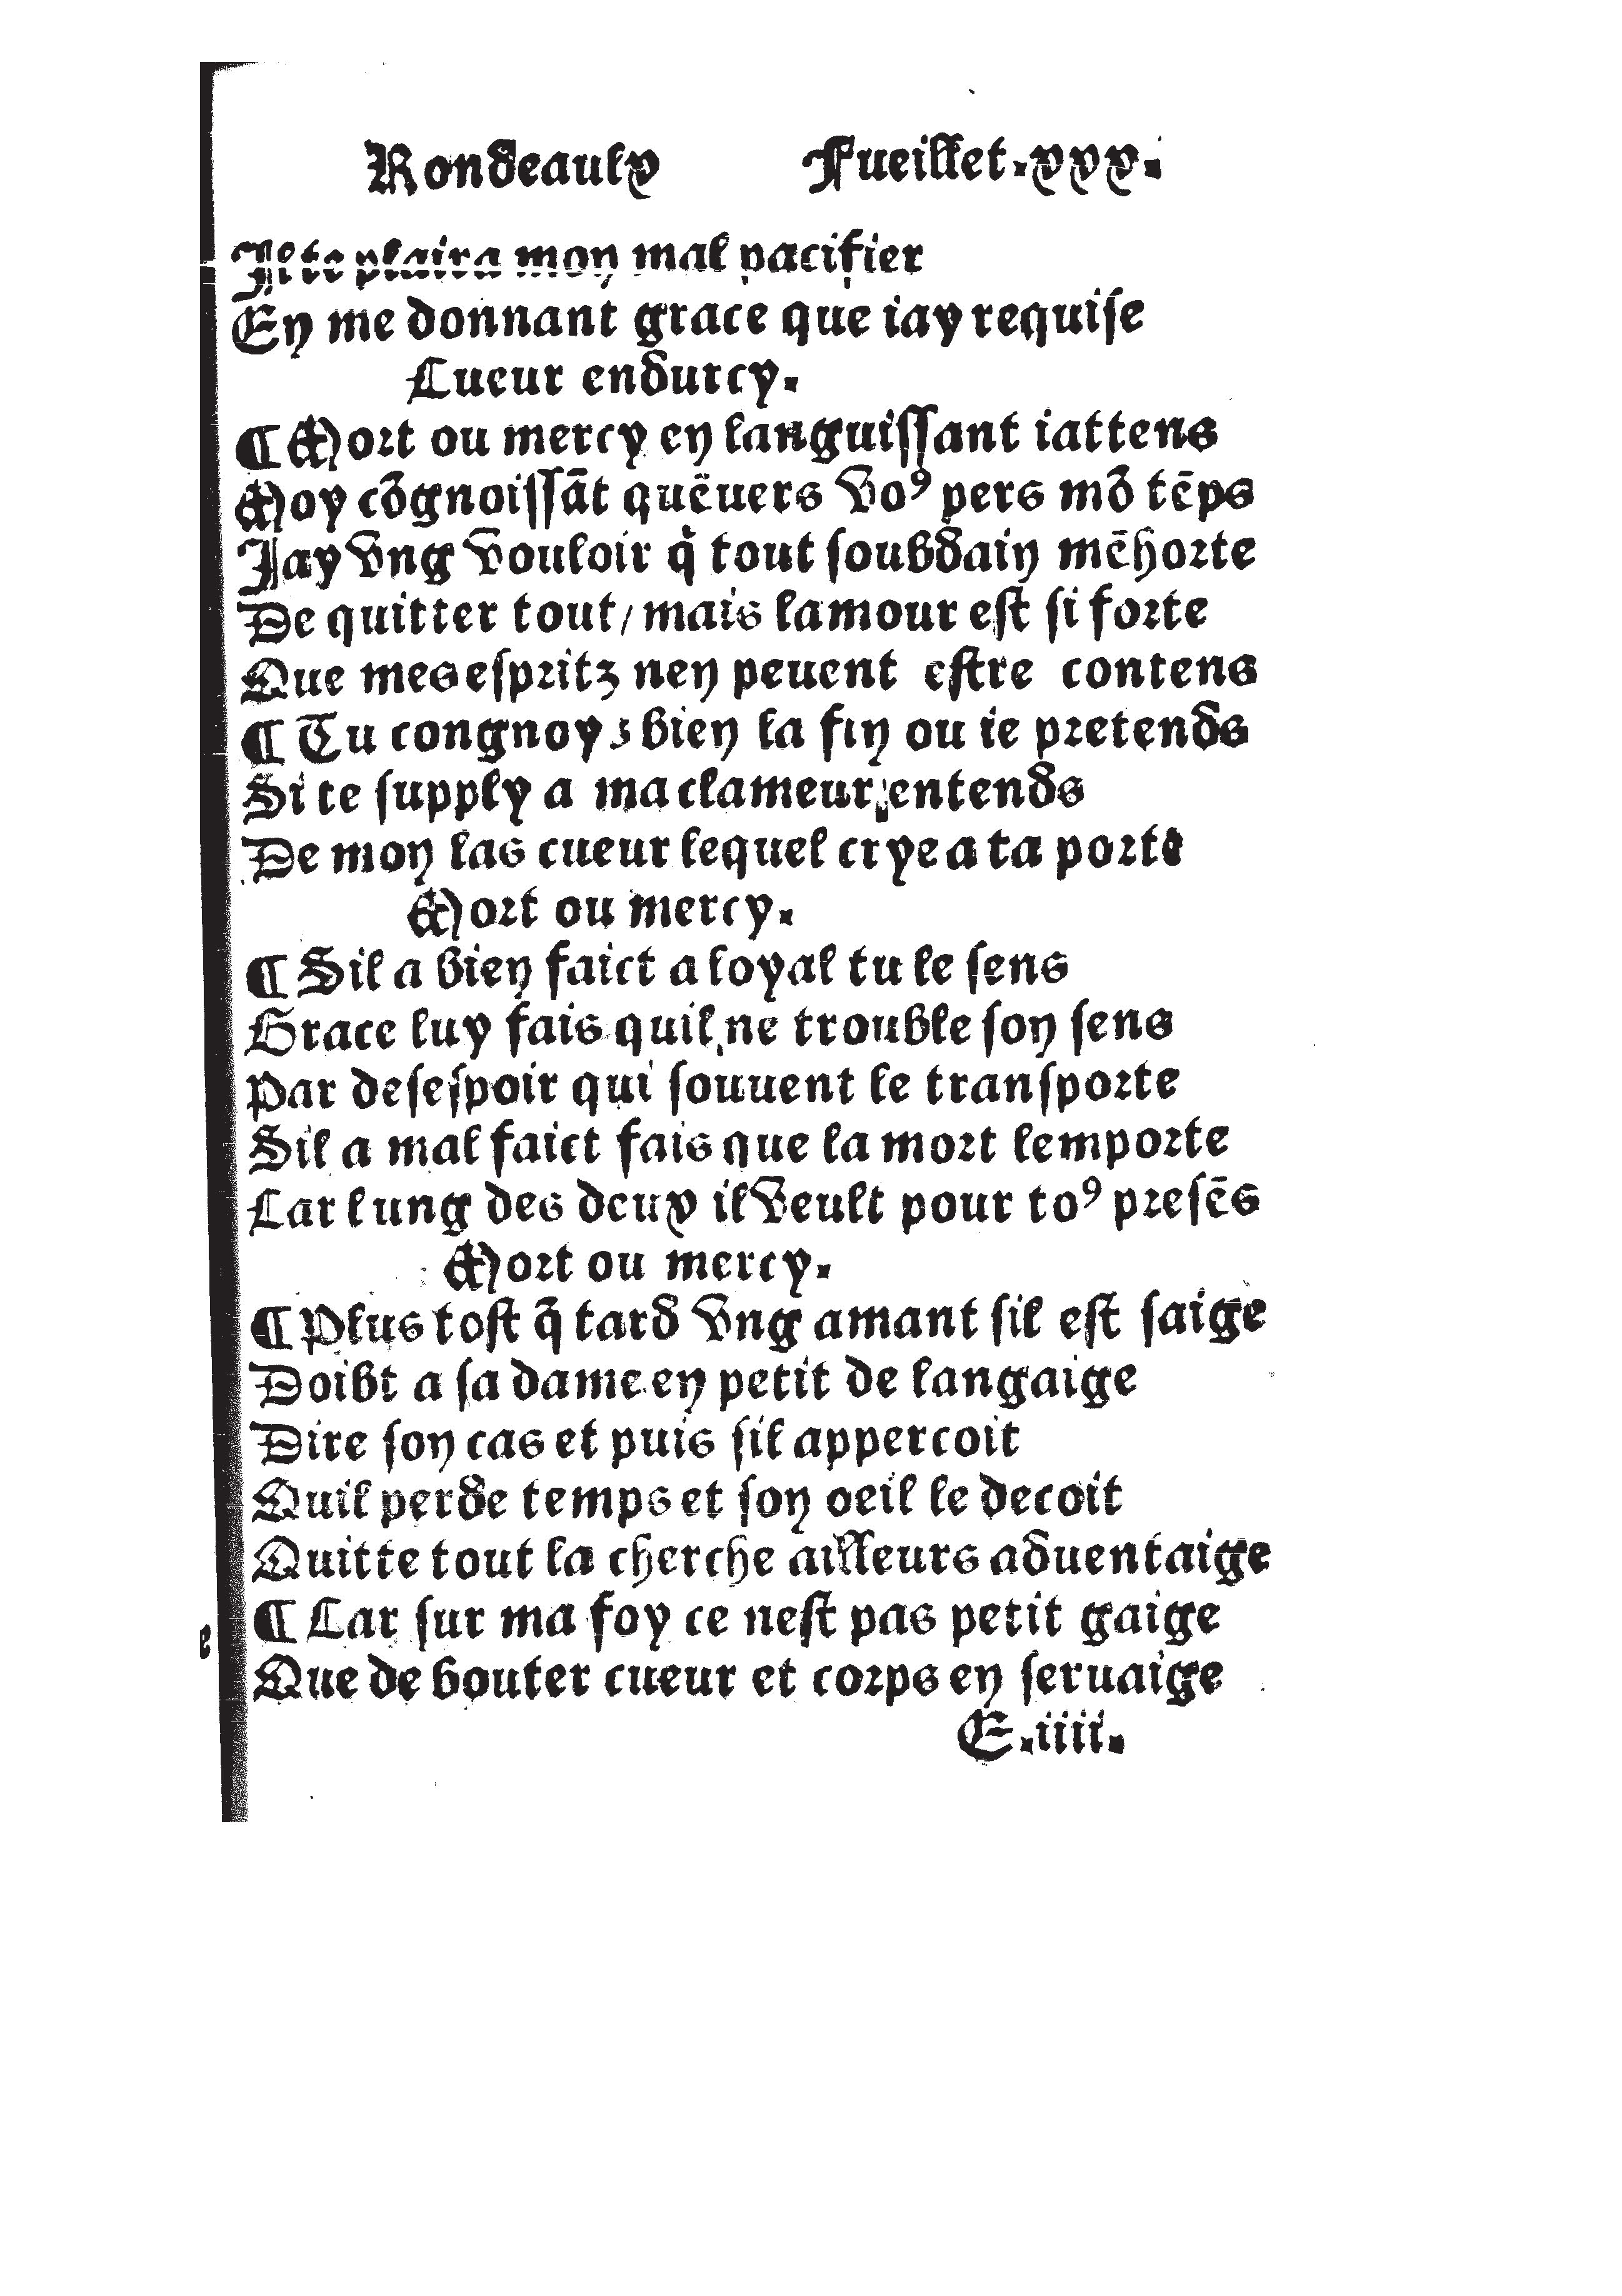 Rondeaulx Fueillet.xxx.
Il te plaira mon mal pacifier
En me donnant grace que iay requise
Cueur endurcy.
¶ Mort ou mercy en languissant iattens
Moy cõgnoissãt quẽuers voꝰ pers mõ tẽps
Jay vng vouloir q̃ tout soubdain mẽhorte
De quitter tout/ mais lamour est si forte
Que mes espritz nen peuent estre contens
¶ Tu congnoys bien la fin ou ie pretends
Si te supply a ma clameur entends
De mon las cueur lequel crye a ta porte
Mort ou mercy.
¶ Sil a bien faict a loyal tu le sens
Grace luy fais quil ne trouble son sens
Par desespoir qui souuent le transporte
Sil a mal faict fais que la mort lemporte
Car lung des deux il veult pour toꝰ presẽs
Mort ou mercy.
¶ Plus tost q̃ tard vng amant sil est saige
Doibt a sa dame en petit de langaige
Dire son cas et puis sil appercoit
Quil perde temps et son oeil le decoit
Quitte tout la cherche ailleurs aduentaige
¶ Car sur ma foy ce nest pas petit gaige
Que de bouter cueur et corps en seruaige
E.iiii.